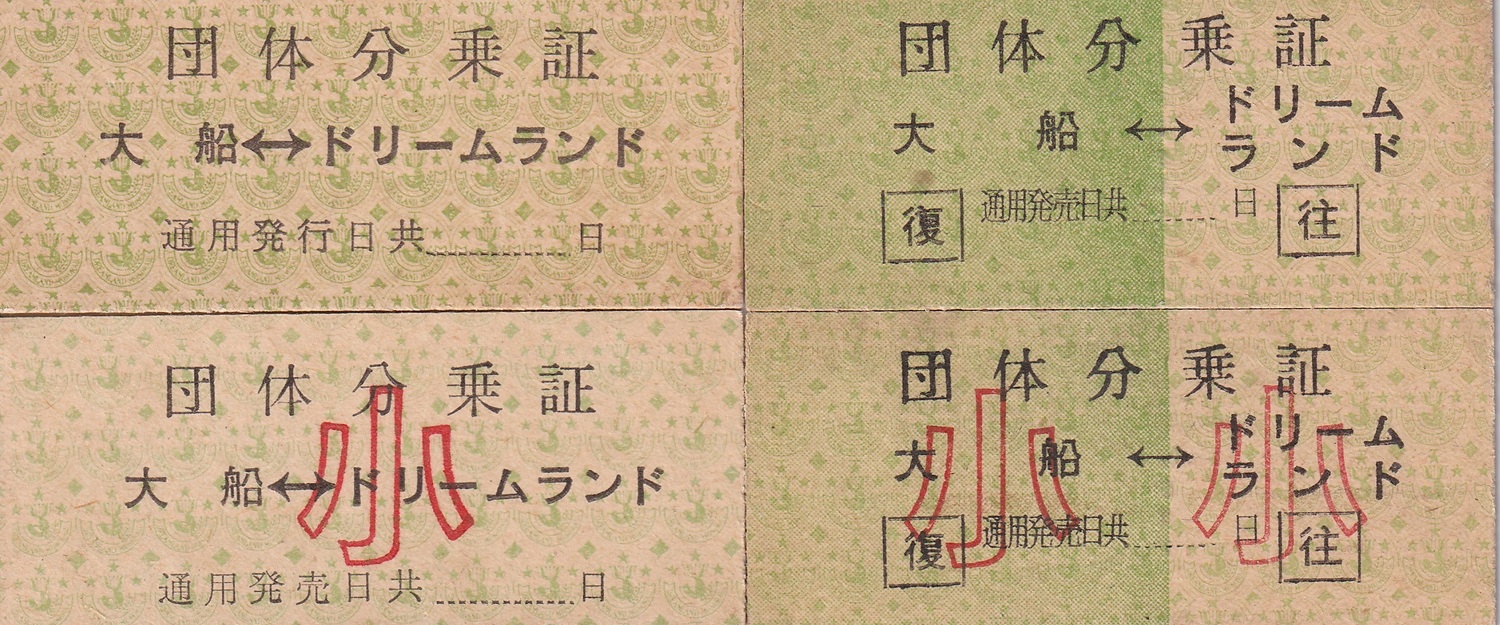 団体分乗証
大船↔ドリームランド
通用発行日共 日
団体分乗証
大船↔ドリームランド
復 通用発売日共 日 往
団体分乗証
小
大船↔ドリームランド
通用発売日共 日
団体分乗証
小 小
大船↔ドリームランド
復 通用発売日共 日 往